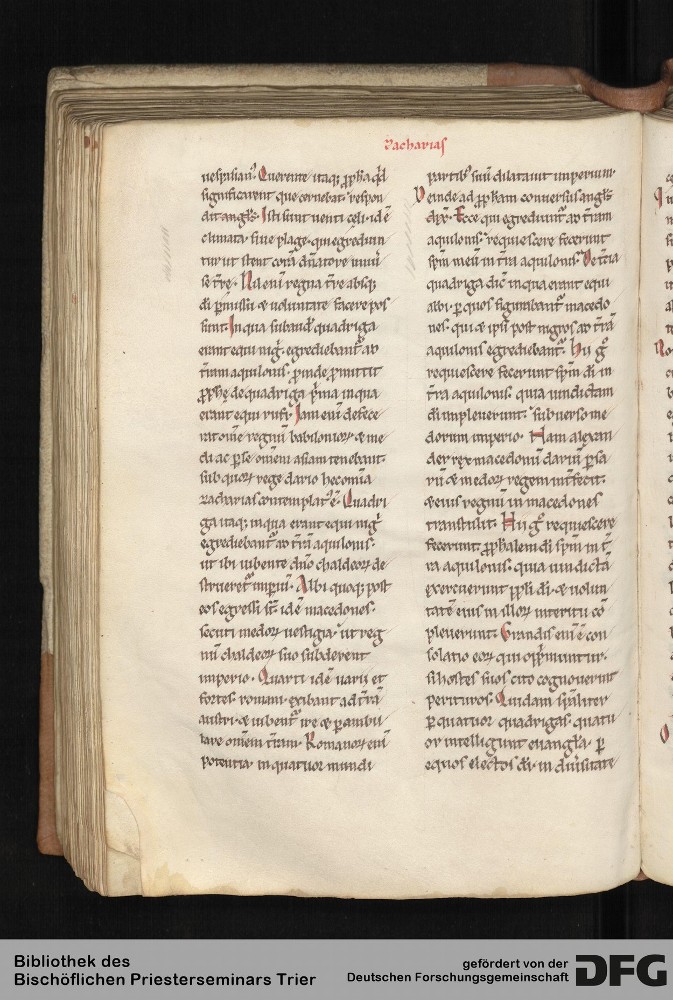 Zacharias
uespasian᷒. Querente itaq; ꝓpħa qd̄
significarent que cernebat. respon
dit angłs. Isti sunt uenti celi. id ē
climata. siue plage. que egrediun
tur ut stent corā dn̄atore uniū
se t̄re. Nil eni regna t̄re absq;
di ꝑmissu & uoluntate facere pos
sunt. In qua subaud̄ quadriga
erant equi nigͥ. egrediebant᷒ ab
t̄ram aquilonis. ꝓinde ꝓmittit
ꝓpħę de quadriga p̄ma in qua
erant equi rufi. Iam eni defece
rat om̄e regnū babilonioꝝ & me
di ac ꝑse om̄em asiam tenebant.
sub quoꝝ rege dario hec om̄ia
zacharias contemplat᷒ ē. Quadri
ga itaq; in qua erant equi nigͥ
egrediebant᷒ ad t̄rā aquilonis.
ut ibi iubente dn̄o chaldeoꝝ de
strueret᷒ imꝑiū. Albi quoq; post
eos egressi st̄. id ē macedones.
secuti medoꝝ uestigia. ut reg
nū chaldeoꝝ suo subderent
imperio. Quarti id ē uarii et
fortes. romani. exibant ad t̄rā
austri. & iubent᷒ ire & ꝑambu
lare om̄em t̄ram. Romanoꝝ eni
potentia. in quatuor mundi
partib᷒ suū dilatauit imperium.
Deinde ad ꝓpħam conuersus angłs
dix̄. Ecce qui egrediunt᷒ ab t̄ram
aquilonis. requiescere fecerunt
sp̄m meū in t̄ra aquilonis. De t̄cia
quadriga dic̄ in qua erant equi
albi. ꝑ quos figurabant᷒ macedo
nes. qui & ipsi post nigros ab t̄rā
aquilonis egrediebant᷒. Hii gͦ
requiescere fecerunt sp̄m di in
t̄ra aquilonis. quia uindictam
di impleuerunt. subuerso me
dorum imperio. Nam alexan
der rex macedonū dariū ꝑsa
rū & medoꝝ regem int̄fecit.
& eius regnū in macedones
transtulit. Hii gͦ requiescere
fecerunt ꝓpħalem di sp̄m in t̄
ra aquilonis. quia uindictā
exercuerunt ppłi di. & uolun
tatē eius in illoꝝ interitu cō
pleuerunt. Grandis eni ē con
solatio eoꝝ qui opp̄muntur.
si hostes suos cito cognouerint
perituros. Quidam sp̄aliter
ꝑ quatuor quadrigas. quatu
or intelligunt euangła. ꝑ
equos electos di. in diuersitate
Bibliothek des
Bischöflichen Priesterseminars Trier
gefördert von der
Deutschen Forschungsgemeinschaft
DFG